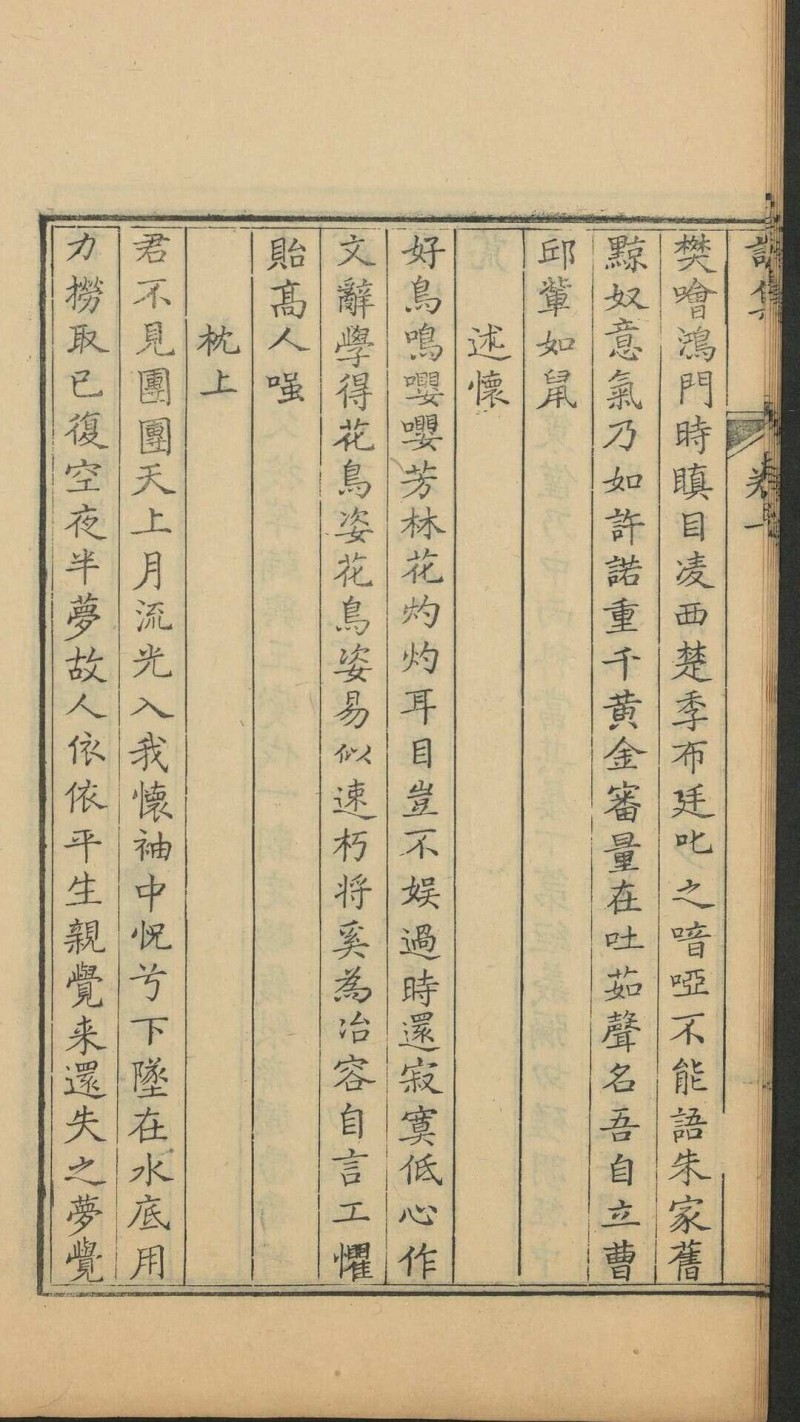 詩集 卷一
樊噲鴻門時瞋目凌西楚季布廷叱之喑啞不能語朱家舊
黥奴意氣乃如許諾重千黃金審量在吐茹聲名吾自立曹
邱輩如鼠
述懷
好鳥鳴嚶嚶芳林花灼灼耳目豈不娛過時還寂寞低心作
文辭學得花鳥姿花鳥姿易似速朽將奚為冶容自言工懼
貽高人嗤
枕上
君不見團團天上月流光入我懷袖中怳兮下墜在水底用
力撈取已復空夜半夢故人依依平生親覺来還失之夢覺